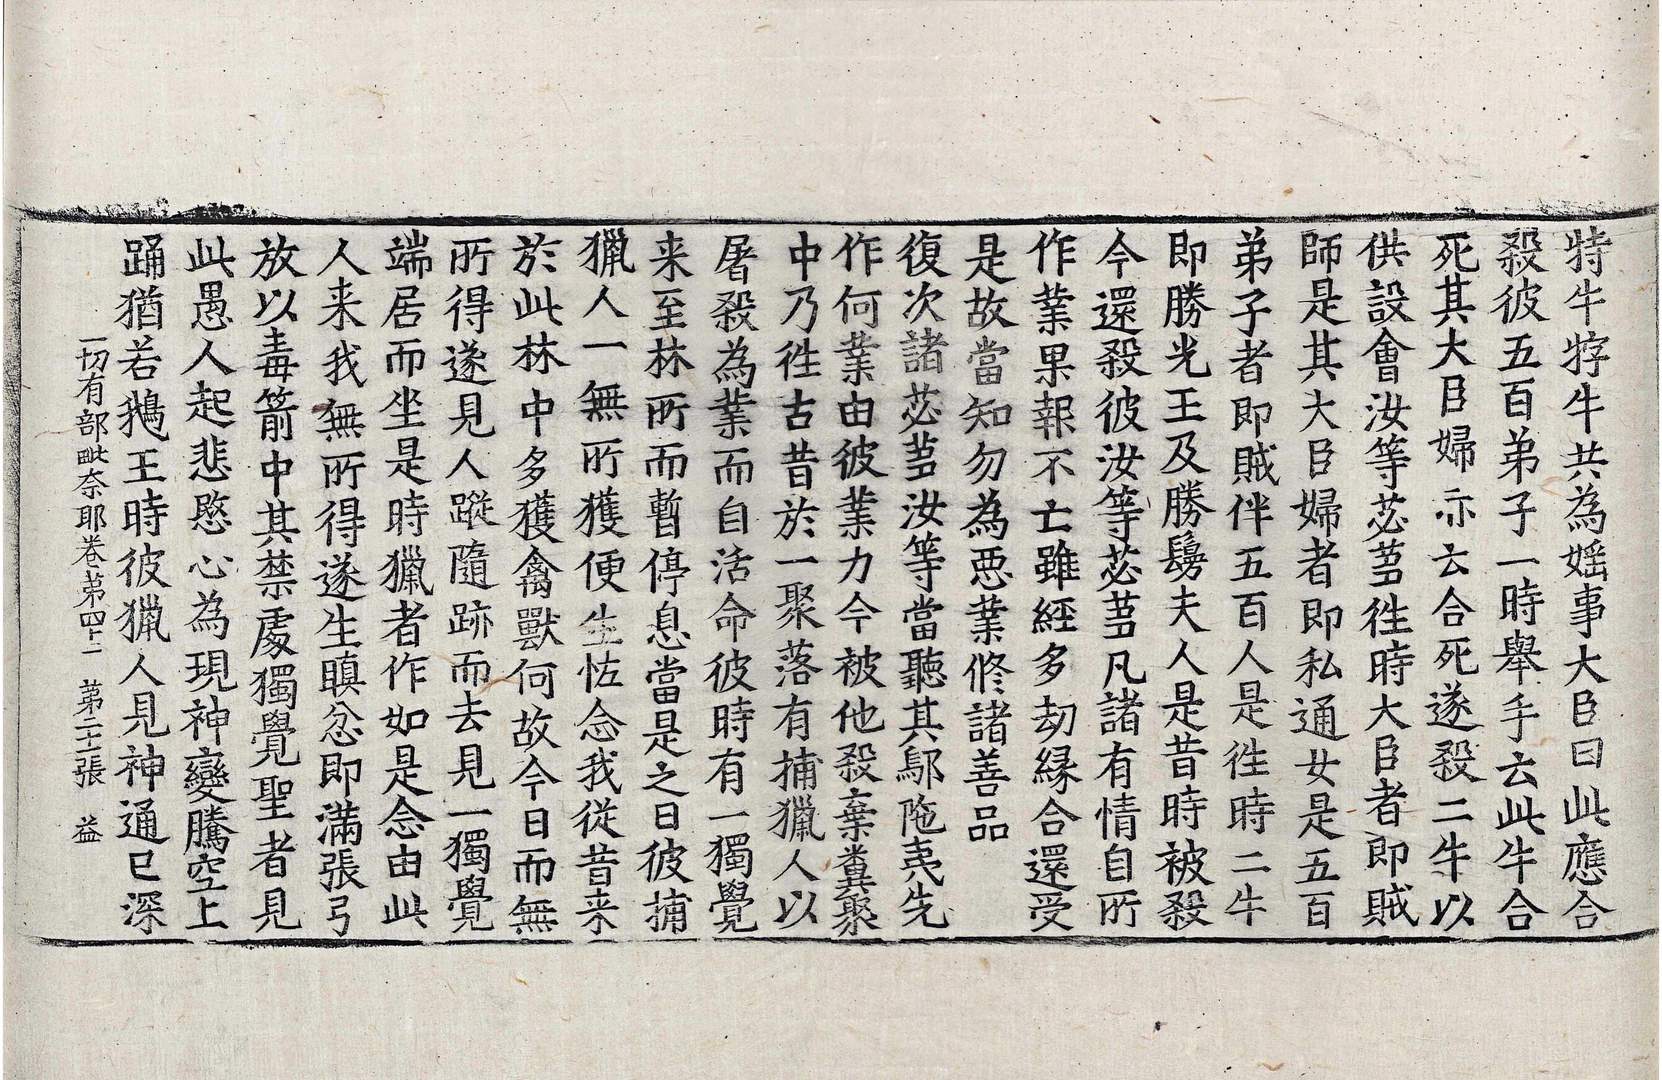 特牛牸牛共為婬事大臣曰此應合
殺彼五百弟子一時舉手云此牛合
死其大臣婦亦云合死遂殺二牛以
供設會汝等苾芻徃時大臣者即賊
師是其大臣婦者即私通女是五百
弟子者即賊伴五百人是徃時二牛
即勝光王及勝鬘夫人是昔時被殺
今還殺彼汝等苾芻凡諸有情自所
作業果報不亡雖經多劫縁合還受
是故當知勿為惡業修諸善品
復次諸苾芻汝等當聽其鄔陁夷先
作何業由彼業力今被他殺棄糞聚
中乃徃古昔於一聚落有捕獵人以
屠殺為業而自活命彼時有一獨覺
来至林所而暫停息當是之日彼捕
獵人一無所獲便生恠念我從昔来
於此林中多獲禽獸何故今日而無
所得遂見人蹤隨跡而去見一獨覺
端居而坐是時獵者作如是念由此
人来我無所得遂生瞋忿即滿張弓
放以毒箭中其禁處獨覺聖者見
此愚人起悲愍心為現神變騰空上
踊猶若鵝王時彼獵人見神通已深
一切有部毗奈耶卷第四十二　第二十張　益